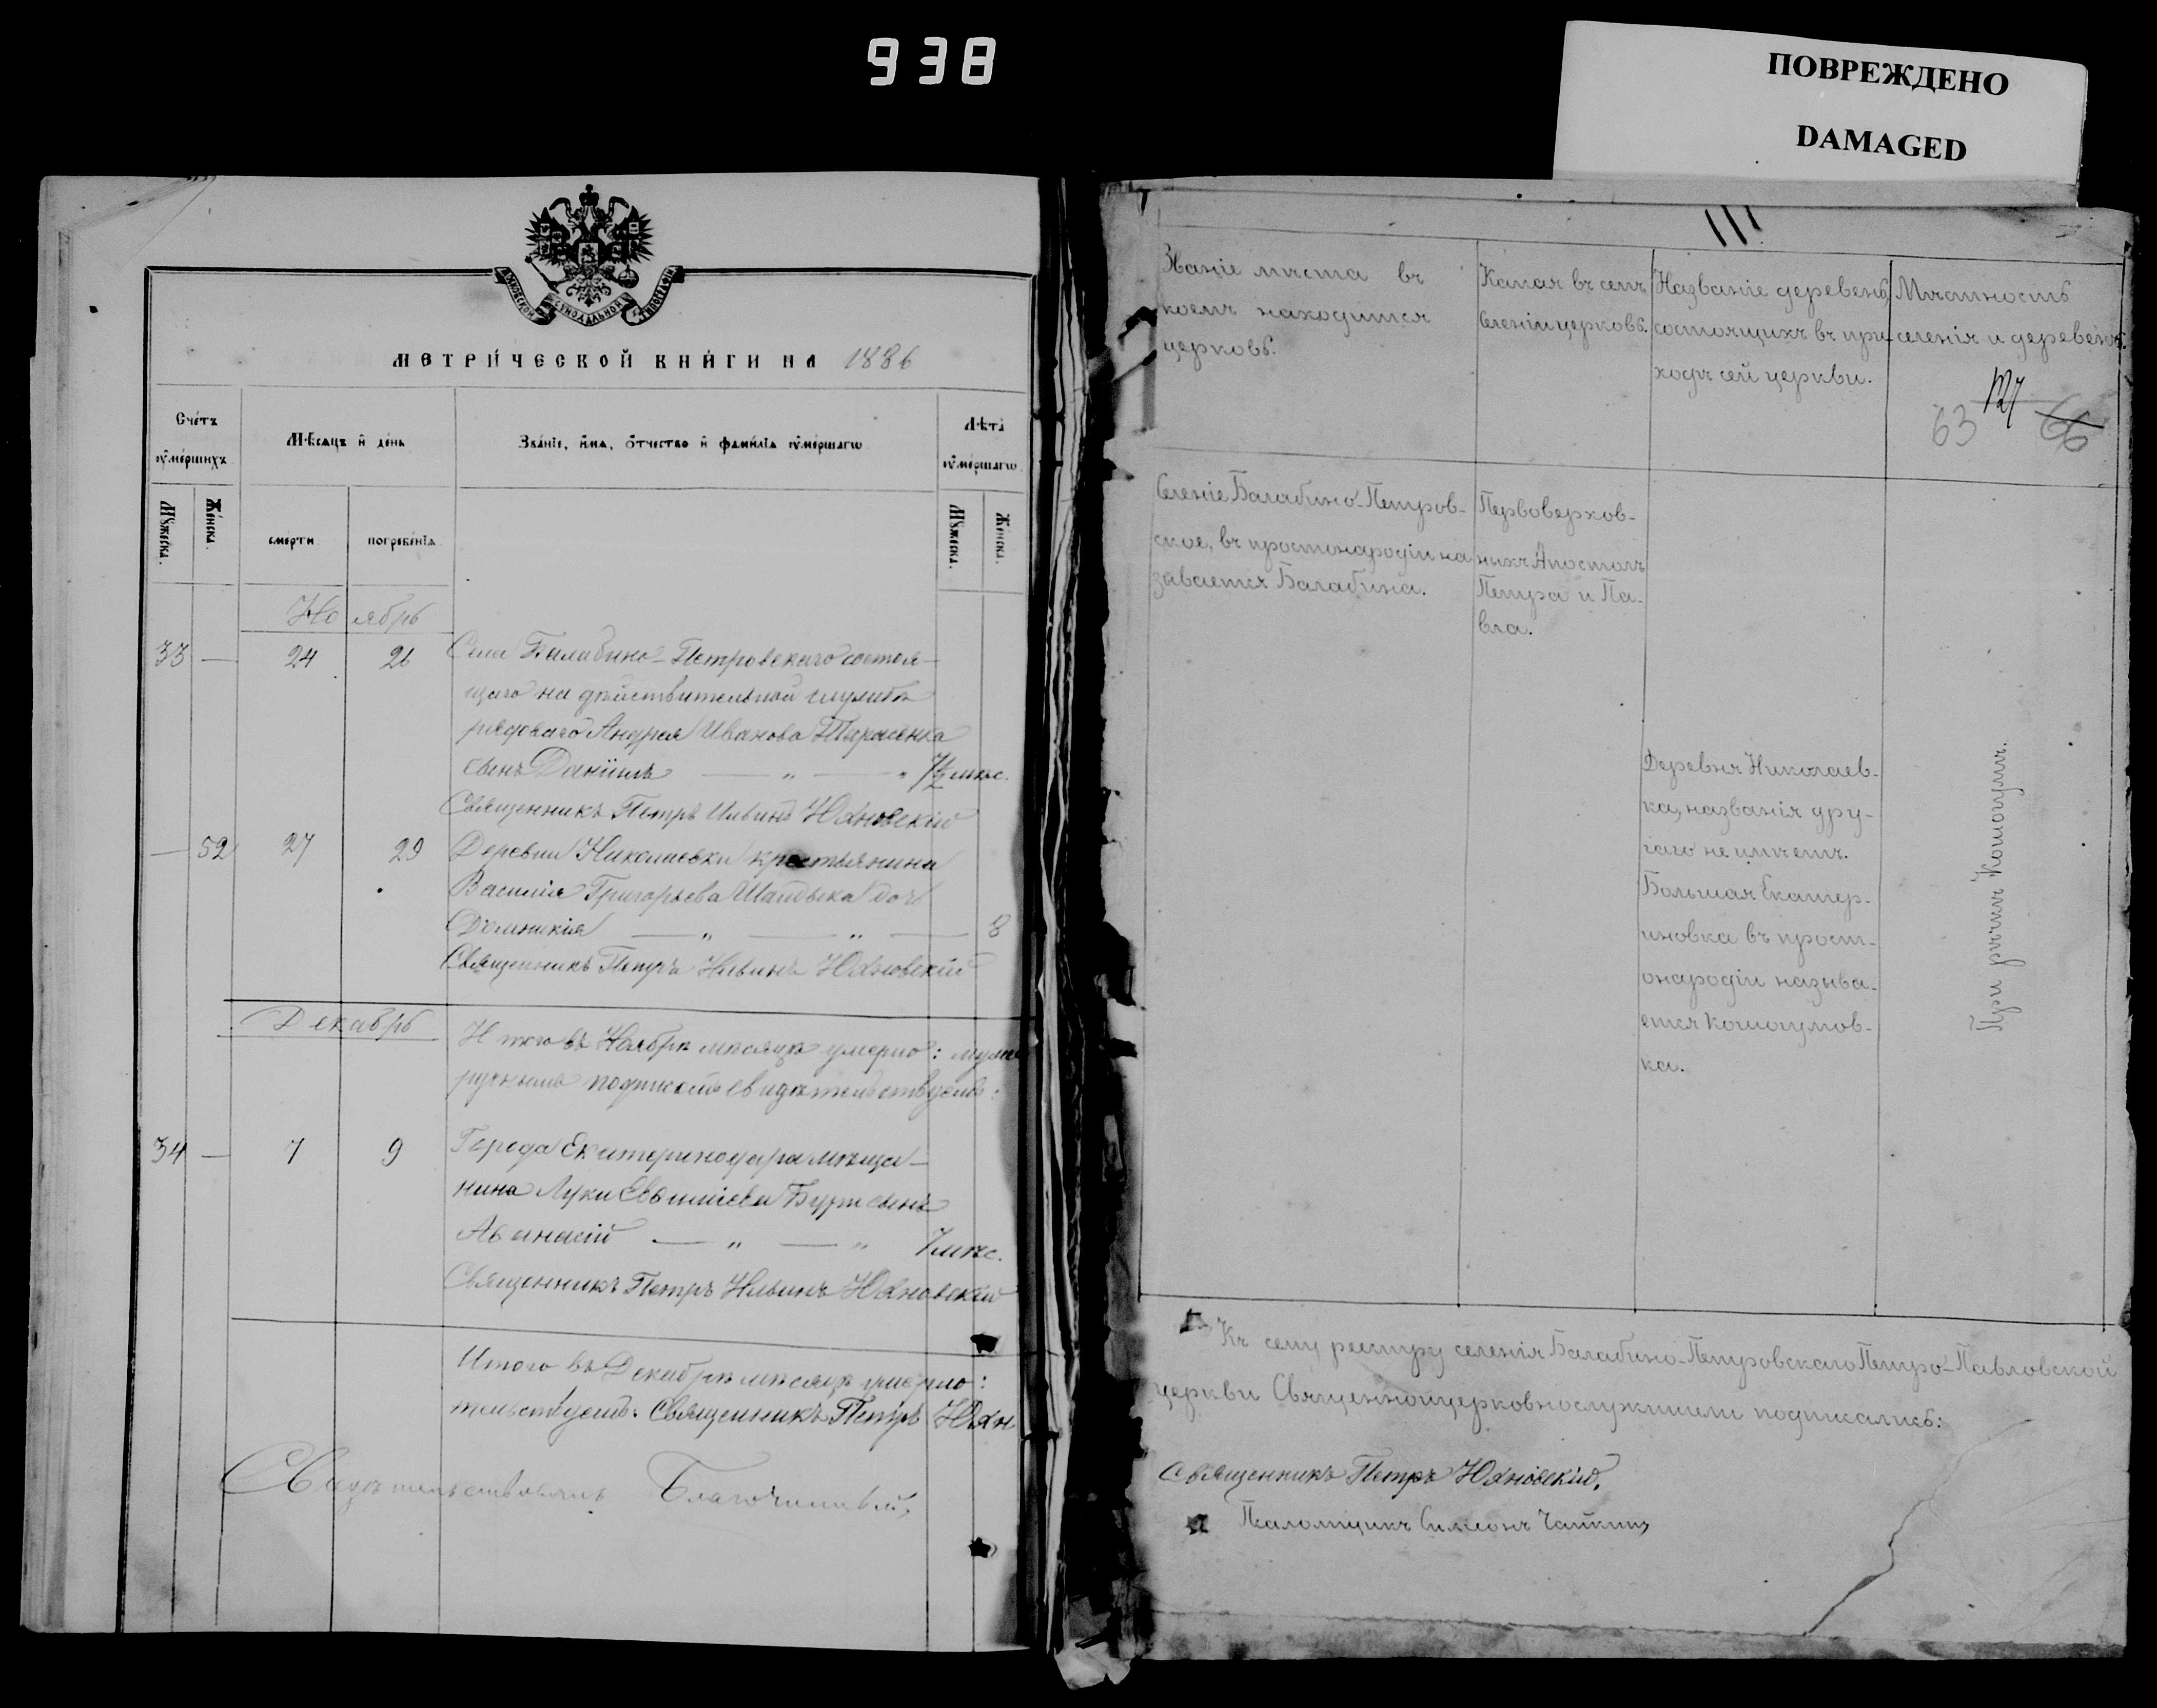 938
ПОВРЕЖДЕНО
DAMAGED
МОСКОВСКОЙ СѴНОДАЛЬНОЙ ТИПОГРАФІИ
МЕТРИ́ЧЕСКОЙ КНИ́ГИ НА 1886
Сче́тъ ᲂу҆ме́ршихъ
Мѣ́сяцъ и҆ де́нь
Зва́нїе, и҆́мѧ, ѻ҆́тчество и҆ фами́лїѧ ᲂу҆ме́ршагѡ
Лѣ́та ᲂу҆ме́ршагѡ
Мꙋ́жеска.
Же́нска.
сме́рти
погребе́нїѧ
Мꙋ́жеска.
Же́нска.
Ноябрь
33 — 24 26 Села Балабино-Петровскаго состоя-
щаго на дѣйствительной службѣ
рядоваго Андрея Иванова Тарасенка
сынъ Даніилъ — „ — „ 7½ мѣс.
Священникъ Петръ Ильинъ Юхновскій
— 52 27 29 Деревни Николаевки крестьянина
Василія Григорьева Шандыка дочь
Домникія — „ — „ — 8
Священникъ Петръ Ильинъ Юхновскій
Декабрь
Итого въ Ноябрѣ мѣсяцѣ умерло: муже
рученнымъ подписомъ свидѣтельствуемъ:
34 — 7 9 Города Екатеринодара мѣща-
нина Луки Бурж сынъ
Аѳанасій — „ — „ 7 мѣс.
Священникъ Петръ Ильинъ Юхновскій
Итого въ Декабрѣ мѣсяцѣ умерло:
тельствуемъ: Священникъ Петръ Юхн
Свидѣтельствовалъ Благочинный,
111
Званіе мѣста въ
коемъ находится
церковь.
Какая въ семъ
селеніи церковь.
Названіе деревень,
состоящихъ въ при-
ходѣ сей церкви.
Мѣстность
селенія и деревень.
63 127 66
Селеніе Балабино-Петров-
ское, въ простонародіи на
зывается Балабина.
Первоверхов-
ныхъ Апостолъ
Петра и Па-
вла.
Деревня Николаев-
ка, названія дру-
гаго не имѣетъ.
Большая Екатер-
иновка въ прост-
онародіи называ-
ется Кошогумов-
ка.
При рѣчкѣ Кошогумѣ.
Къ сему реэстру селенія Балабино-Петровскаго Петро-Павловской
церкви Священноцерковнослужители подписались:
Священникъ Петръ Юхновскій,
Псаломщикъ Симеонъ Чапкинъ